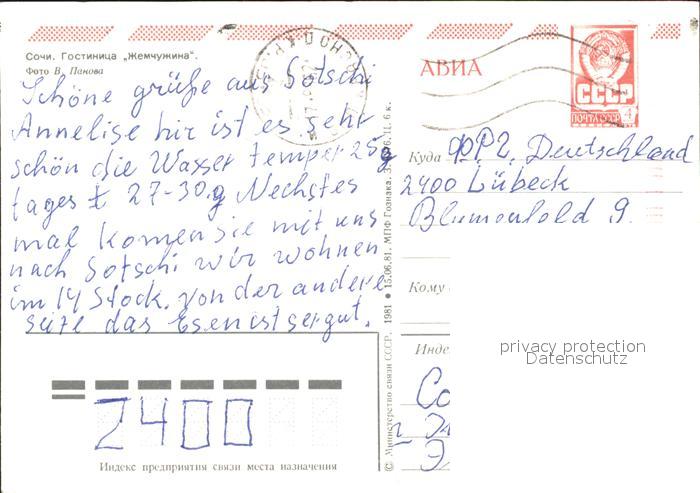 Сочи. Гостиница „Жемчужина“.
Фото В. Панова
Schöne grüße aus Sotschi
Annelise hir ist es sehr
schön die Wasser temper 25g
tages t 27-30g Nechstes
mal komen sie mit uns
nach Sotschi wir wohnen
im 14 Stock. von der andere
seite das Esen ist ser gut.
АВИА
СССР
ПОЧТА СССР 4
Куда ФРГ. Deutschland
2400 Lübeck
Blumenfold 9.
Кому
Инде
Со
Эл
2400
Индекс предприятия связи места назначения
© Министерство связи СССР. 1981 ● 15.06.81. МПФ Гознака. Ц. 6 к.
privacy protection
Datenschutz